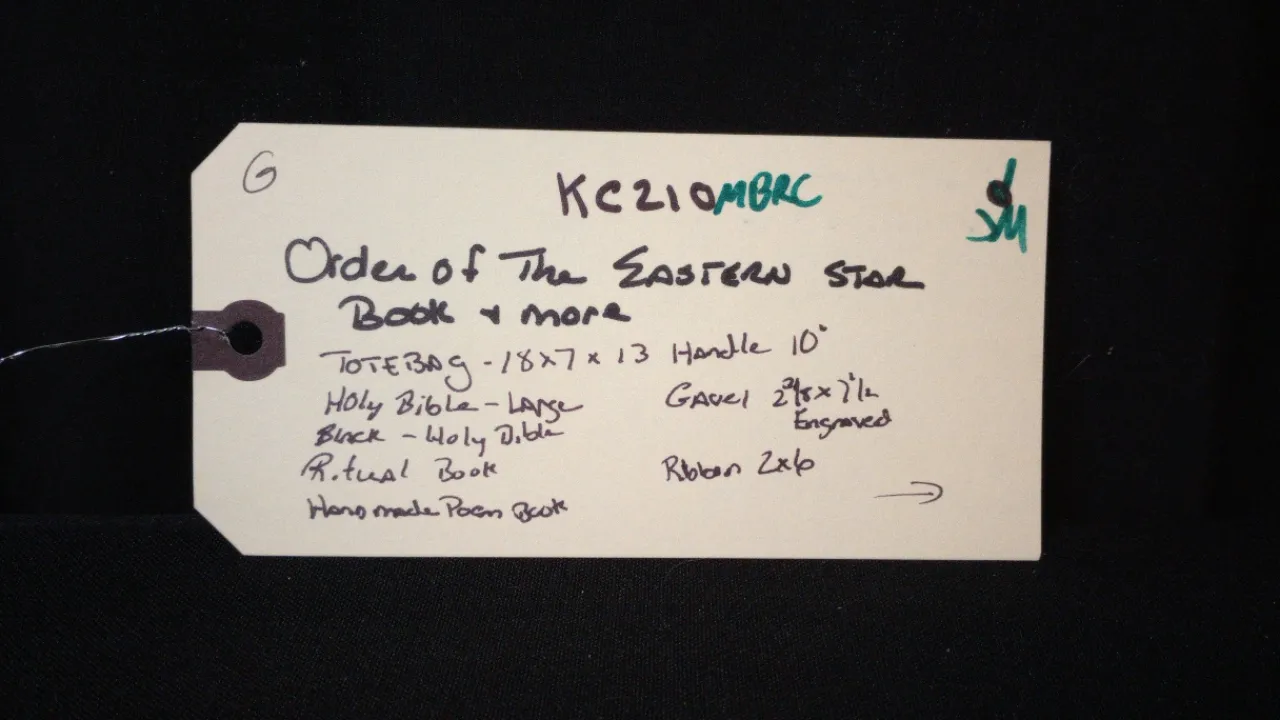 G
KC210MBRC
JM
Order of The EASTERN STAR
Book & more
TOTEBAG - 18x7 x 13 Handle 10"
Holy Bible - Large
Black - Holy Bible
Ritual Book
Handmade Poem Book
Gavel 2 3/8 x 7 1/2
Engraved
Ribbon 2x6
→